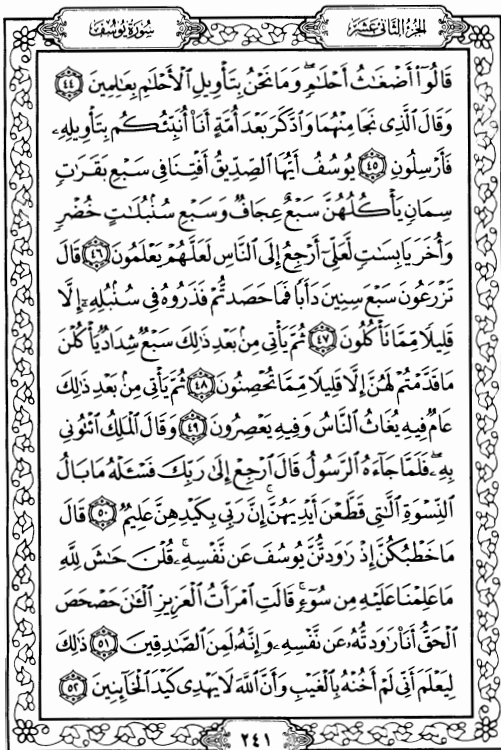 سُورَةُ يُوسُفَ
الجُزْءُ الثَّانِي عَشَرَ
قَالُوٓا۟ أَضْغَـٰثُ أَحْلَـٰمٍۖ وَمَا نَحْنُ بِتَأْوِيلِ ٱلْأَحْلَـٰمِ بِعَـٰلِمِينَ ٤٤
وَقَالَ ٱلَّذِى نَجَا مِنْهُمَا وَٱدَّكَرَ بَعْدَ أُمَّةٍ أَنَا۠ أُنَبِّئُكُم بِتَأْوِيلِهِۦ
فَأَرْسِلُونِ ٤٥ يُوسُفُ أَيُّهَا ٱلصِّدِّيقُ أَفْتِنَا فِى سَبْعِ بَقَرَٰتٍ
سِمَانٍ يَأْكُلُهُنَّ سَبْعٌ عِجَافٌ وَسَبْعِ سُنۢبُلَـٰتٍ خُضْرٍ
وَأُخَرَ يَابِسَـٰتٍ لَّعَلِّىٓ أَرْجِعُ إِلَى ٱلنَّاسِ لَعَلَّهُمْ يَعْلَمُونَ ٤٦ قَالَ
تَزْرَعُونَ سَبْعَ سِنِينَ دَأَبًا فَمَا حَصَدتُّمْ فَذَرُوهُ فِى سُنۢبُلِهِۦٓ إِلَّا
قَلِيلًا مِّمَّا تَأْكُلُونَ ٤٧ ثُمَّ يَأْتِى مِنۢ بَعْدِ ذَٰلِكَ سَبْعٌ شِدَادٌ يَأْكُلْنَ
مَا قَدَّمْتُمْ لَهُنَّ إِلَّا قَلِيلًا مِّمَّا تُحْصِنُونَ ٤٨ ثُمَّ يَأْتِى مِنۢ بَعْدِ ذَٰلِكَ
عَامٌ فِيهِ يُغَاثُ ٱلنَّاسُ وَفِيهِ يَعْصِرُونَ ٤٩ وَقَالَ ٱلْمَلِكُ ٱئْتُونِى
بِهِۦۖ فَلَمَّا جَآءَهُ ٱلرَّسُولُ قَالَ ٱرْجِعْ إِلَىٰ رَبِّكَ فَسْـَٔلْهُ مَا بَالُ
ٱلنِّسْوَةِ ٱلَّـٰتِى قَطَّعْنَ أَيْدِيَهُنَّۚ إِنَّ رَبِّى بِكَيْدِهِنَّ عَلِيمٌ ٥٠ قَالَ
مَا خَطْبُكُنَّ إِذْ رَٰوَدتُّنَّ يُوسُفَ عَن نَّفْسِهِۦۚ قُلْنَ حَـٰشَ لِلَّهِ
مَا عَلِمْنَا عَلَيْهِ مِن سُوٓءٍۚ قَالَتِ ٱمْرَأَتُ ٱلْعَزِيزِ ٱلْـَٔـٰنَ حَصْحَصَ
ٱلْحَقُّ أَنَا۠ رَٰوَدتُّهُۥ عَن نَّفْسِهِۦ وَإِنَّهُۥ لَمِنَ ٱلصَّـٰدِقِينَ ٥١ ذَٰلِكَ
لِيَعْلَمَ أَنِّى لَمْ أَخُنْهُ بِٱلْغَيْبِ وَأَنَّ ٱللَّهَ لَا يَهْدِى كَيْدَ ٱلْخَآئِنِينَ ٥٢
٢٤١